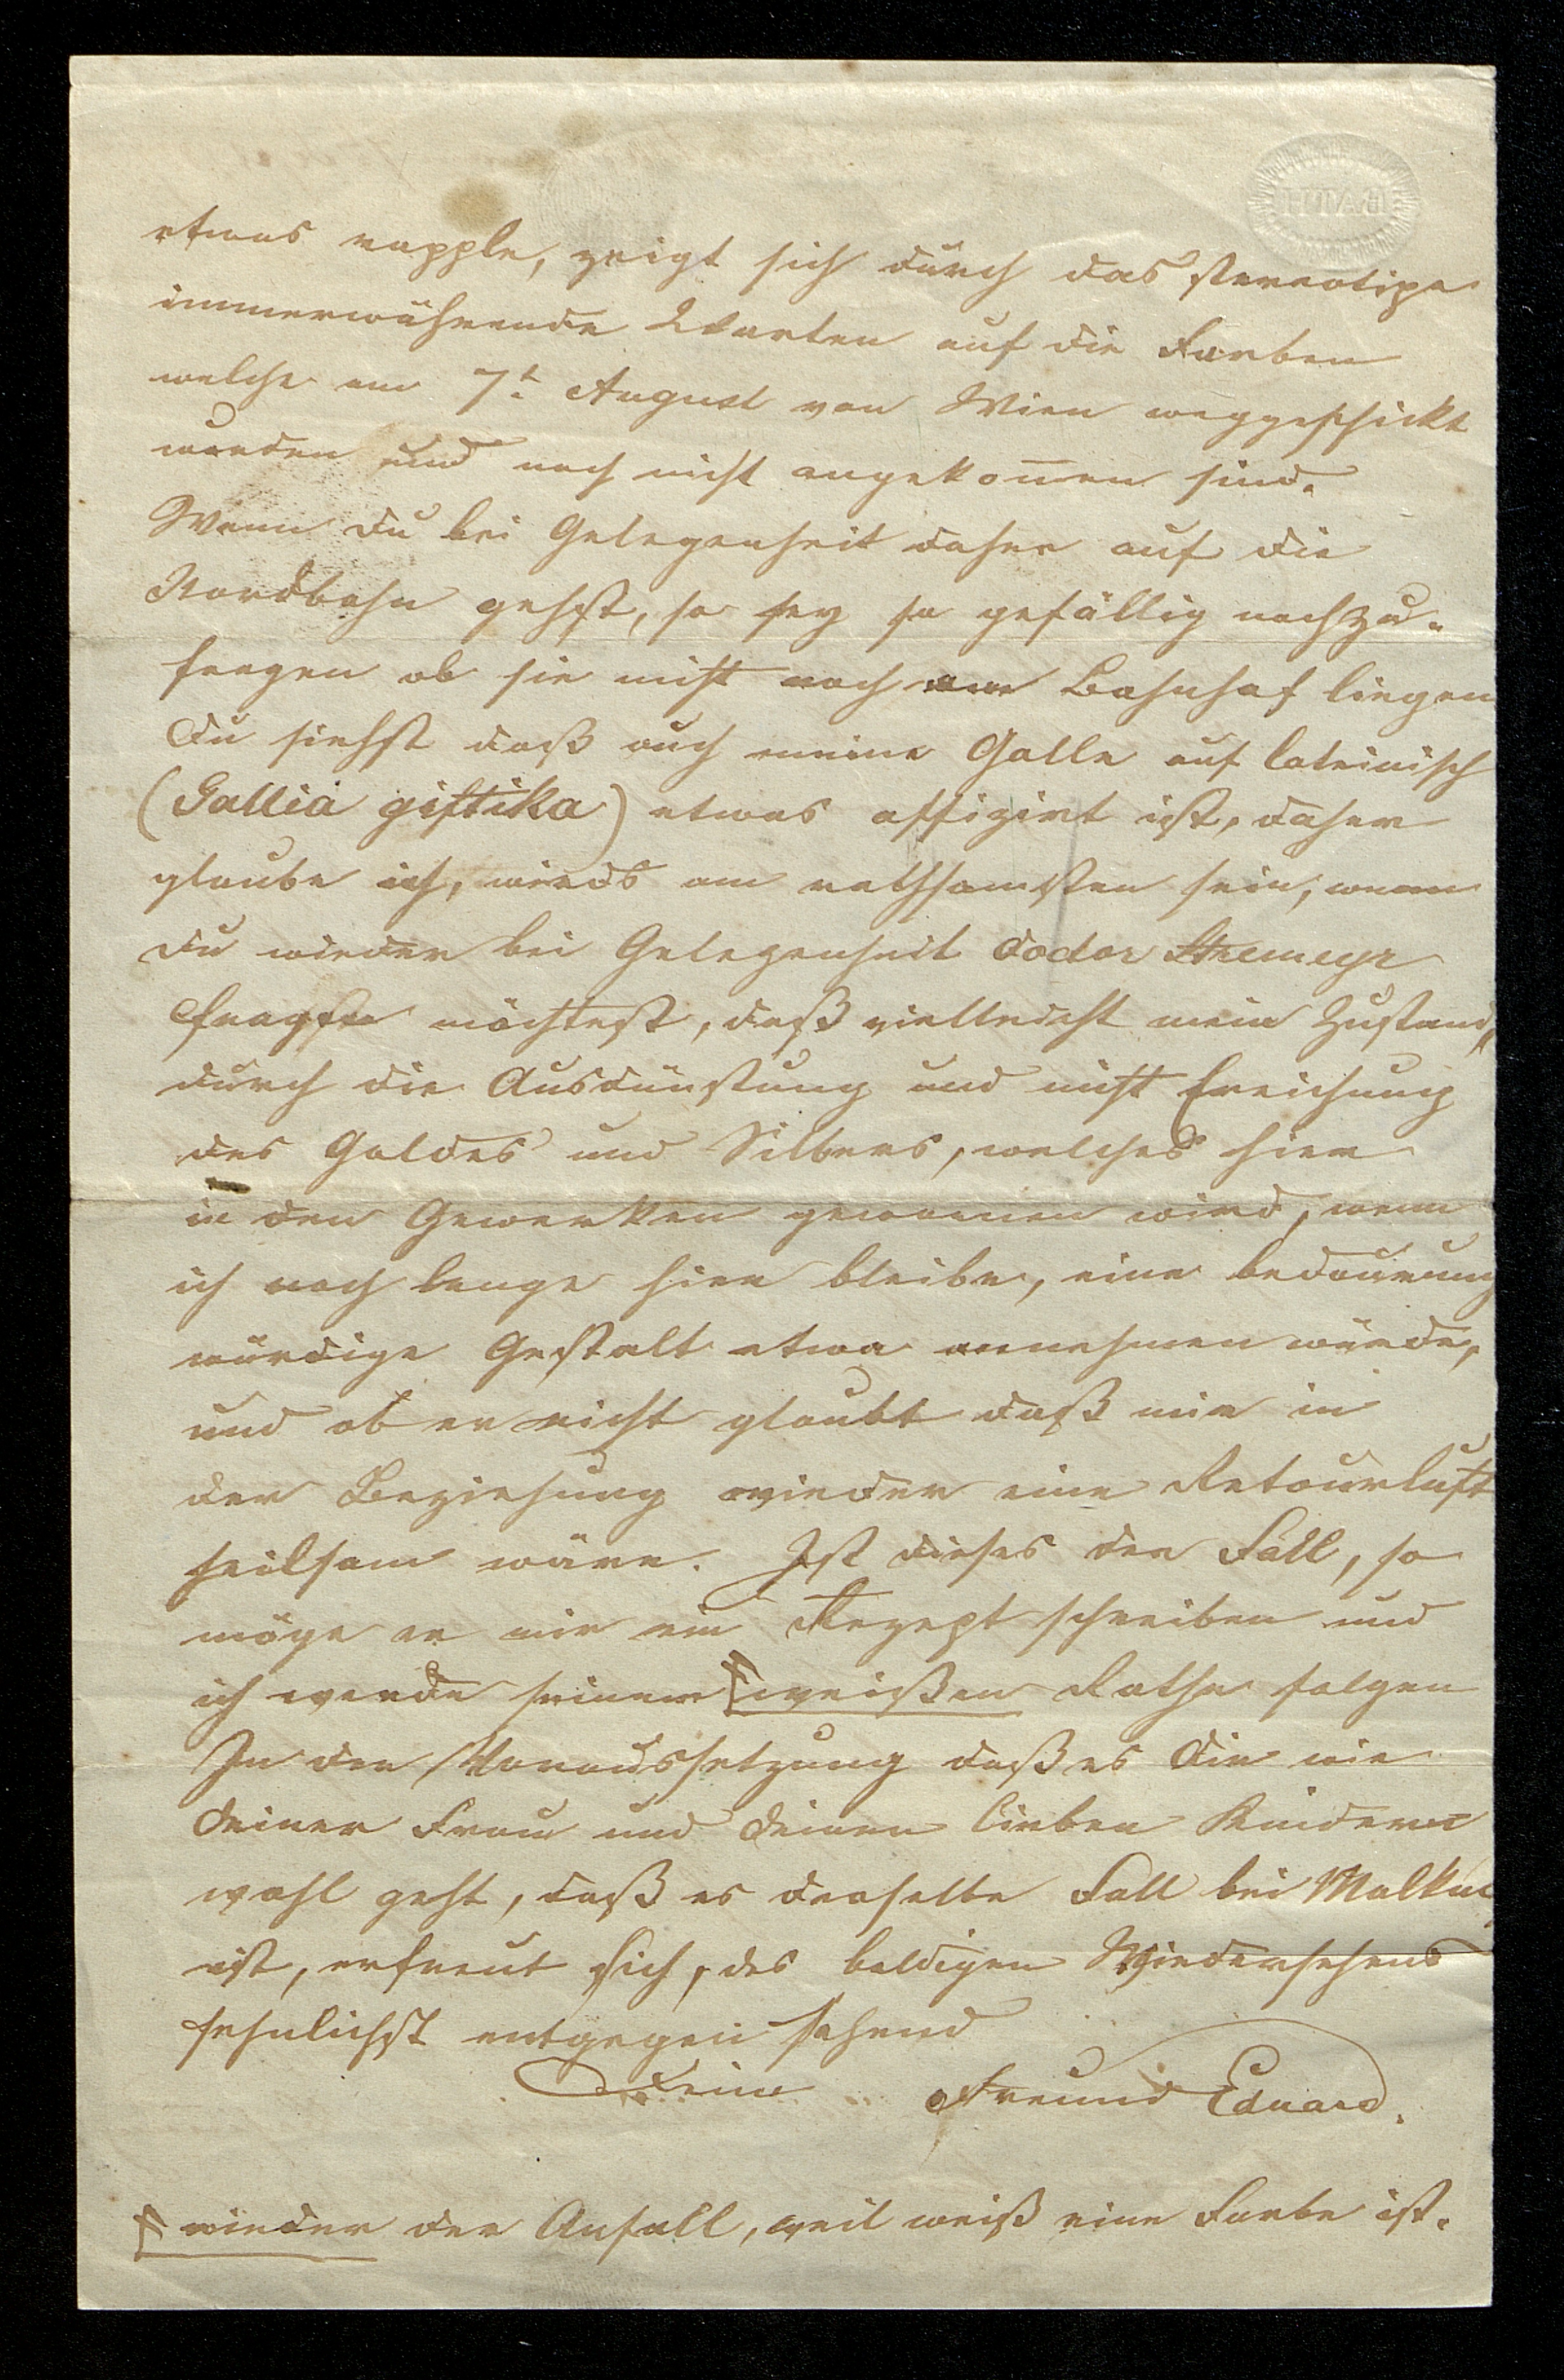 BATH
etwas rapple, zeigt sich durch das stereotipe
immerwährende Warten auf die Farben
welche am 7t. August von Wien weggeschickt
wurden und noch nicht angekom̅en sind.
Wenn Du bei Gelegenheit daher auf die
Nordbahn gehst, so sey so gefällig nachzu-
fragen ob sie nicht noch am Bahnhof liegen
Du siehst daß auch meine Galle auf lateinisch
(Gallia giftika) etwas affizirt ist, daher
glaube ich, wirds am rathsamsten sein, wenn
Du wieder bei Gelegenheit Doctor Stremeyr
fragen möchtest, daß vielleicht mein Zustand,
durch die Ausdünstung und nicht Ereichung
des Goldes und Silbers, welches hier
in den Gewerken gewonnen wird, wenn
ich noch lange hier bleibe, eine bedauerung
würdige Gestalt etwa annehmen würde,
und ob er nicht glaubt daß mir in
der Beziehung wieder eine Retourluft
heilsam wäre. Ist dieses der Fall, so
möge er mir ein Rezept schreiben und
ich werde seinem weißen Rathe folgen
In der Voraussetzung daß es Dir wie
Deiner Frau und Deinen lieben Kindern
wohl geht, daß es derselbe Fall bei
ist, erfreut sich, des baldigen Wiedersehens
sehnlichst entgegen sehend
Dein Freund Eduard.
wieder der Anfall, weil weiß eine Farbe ist.